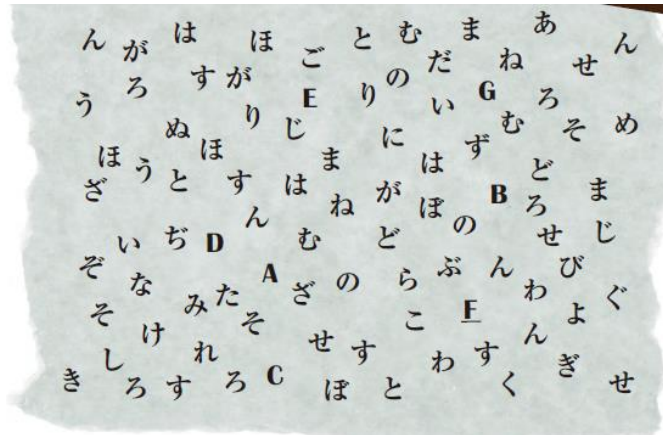 ん が は ほ ご と む ま あ ん
う ろ す が E り の だ ね せ
ぬ り じ い G ろ
ほ う ほ ま に は ず む そ め
ざ と す は ね が ぼ B ど ま
ん の ろ
い ぢ D む ど せ じ
ぞ な A ざ の ら ぶ ん び
そ み た そ こ F わ よ ぐ
け せ す ん
し れ わ す ぎ
き ろ す ろ C ぼ と く せ